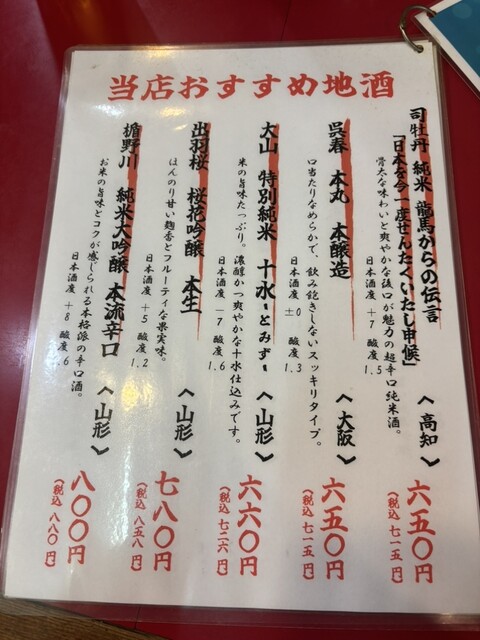 当店おすすめ地酒
司牡丹 純米 龍馬からの伝言
「日本を今一度せんたくいたし申候」
骨太な味わいと爽やかな後口が魅力の超辛口純米酒。
日本酒度 +7 酸度 1.5
〈高知〉
六五〇円
(税込 七一五円)
呉春 本丸 本醸造
口当たりなめらかで、飲み飽きしないスッキリタイプ。
日本酒度 ±0 酸度 1.3
〈大阪〉
六五〇円
(税込 七一五円)
大山 特別純米 十水~とみず~
米の旨味たっぷり。濃醇かつ爽やかな十水仕込みです。
日本酒度 -7 酸度 1.6
〈山形〉
六六〇円
(税込 七二六円)
出羽桜 桜花吟醸 本生
ほんのり甘い麹香とフルーティな果実味。
日本酒度 +5 酸度 1.2
〈山形〉
七八〇円
(税込 八五八円)
楯野川 純米大吟醸 本流辛口
お米の旨味とコクが感じられる本格派の辛口酒。
日本酒度 +8 酸度 1.6
〈山形〉
八〇〇円
(税込 八八〇円)